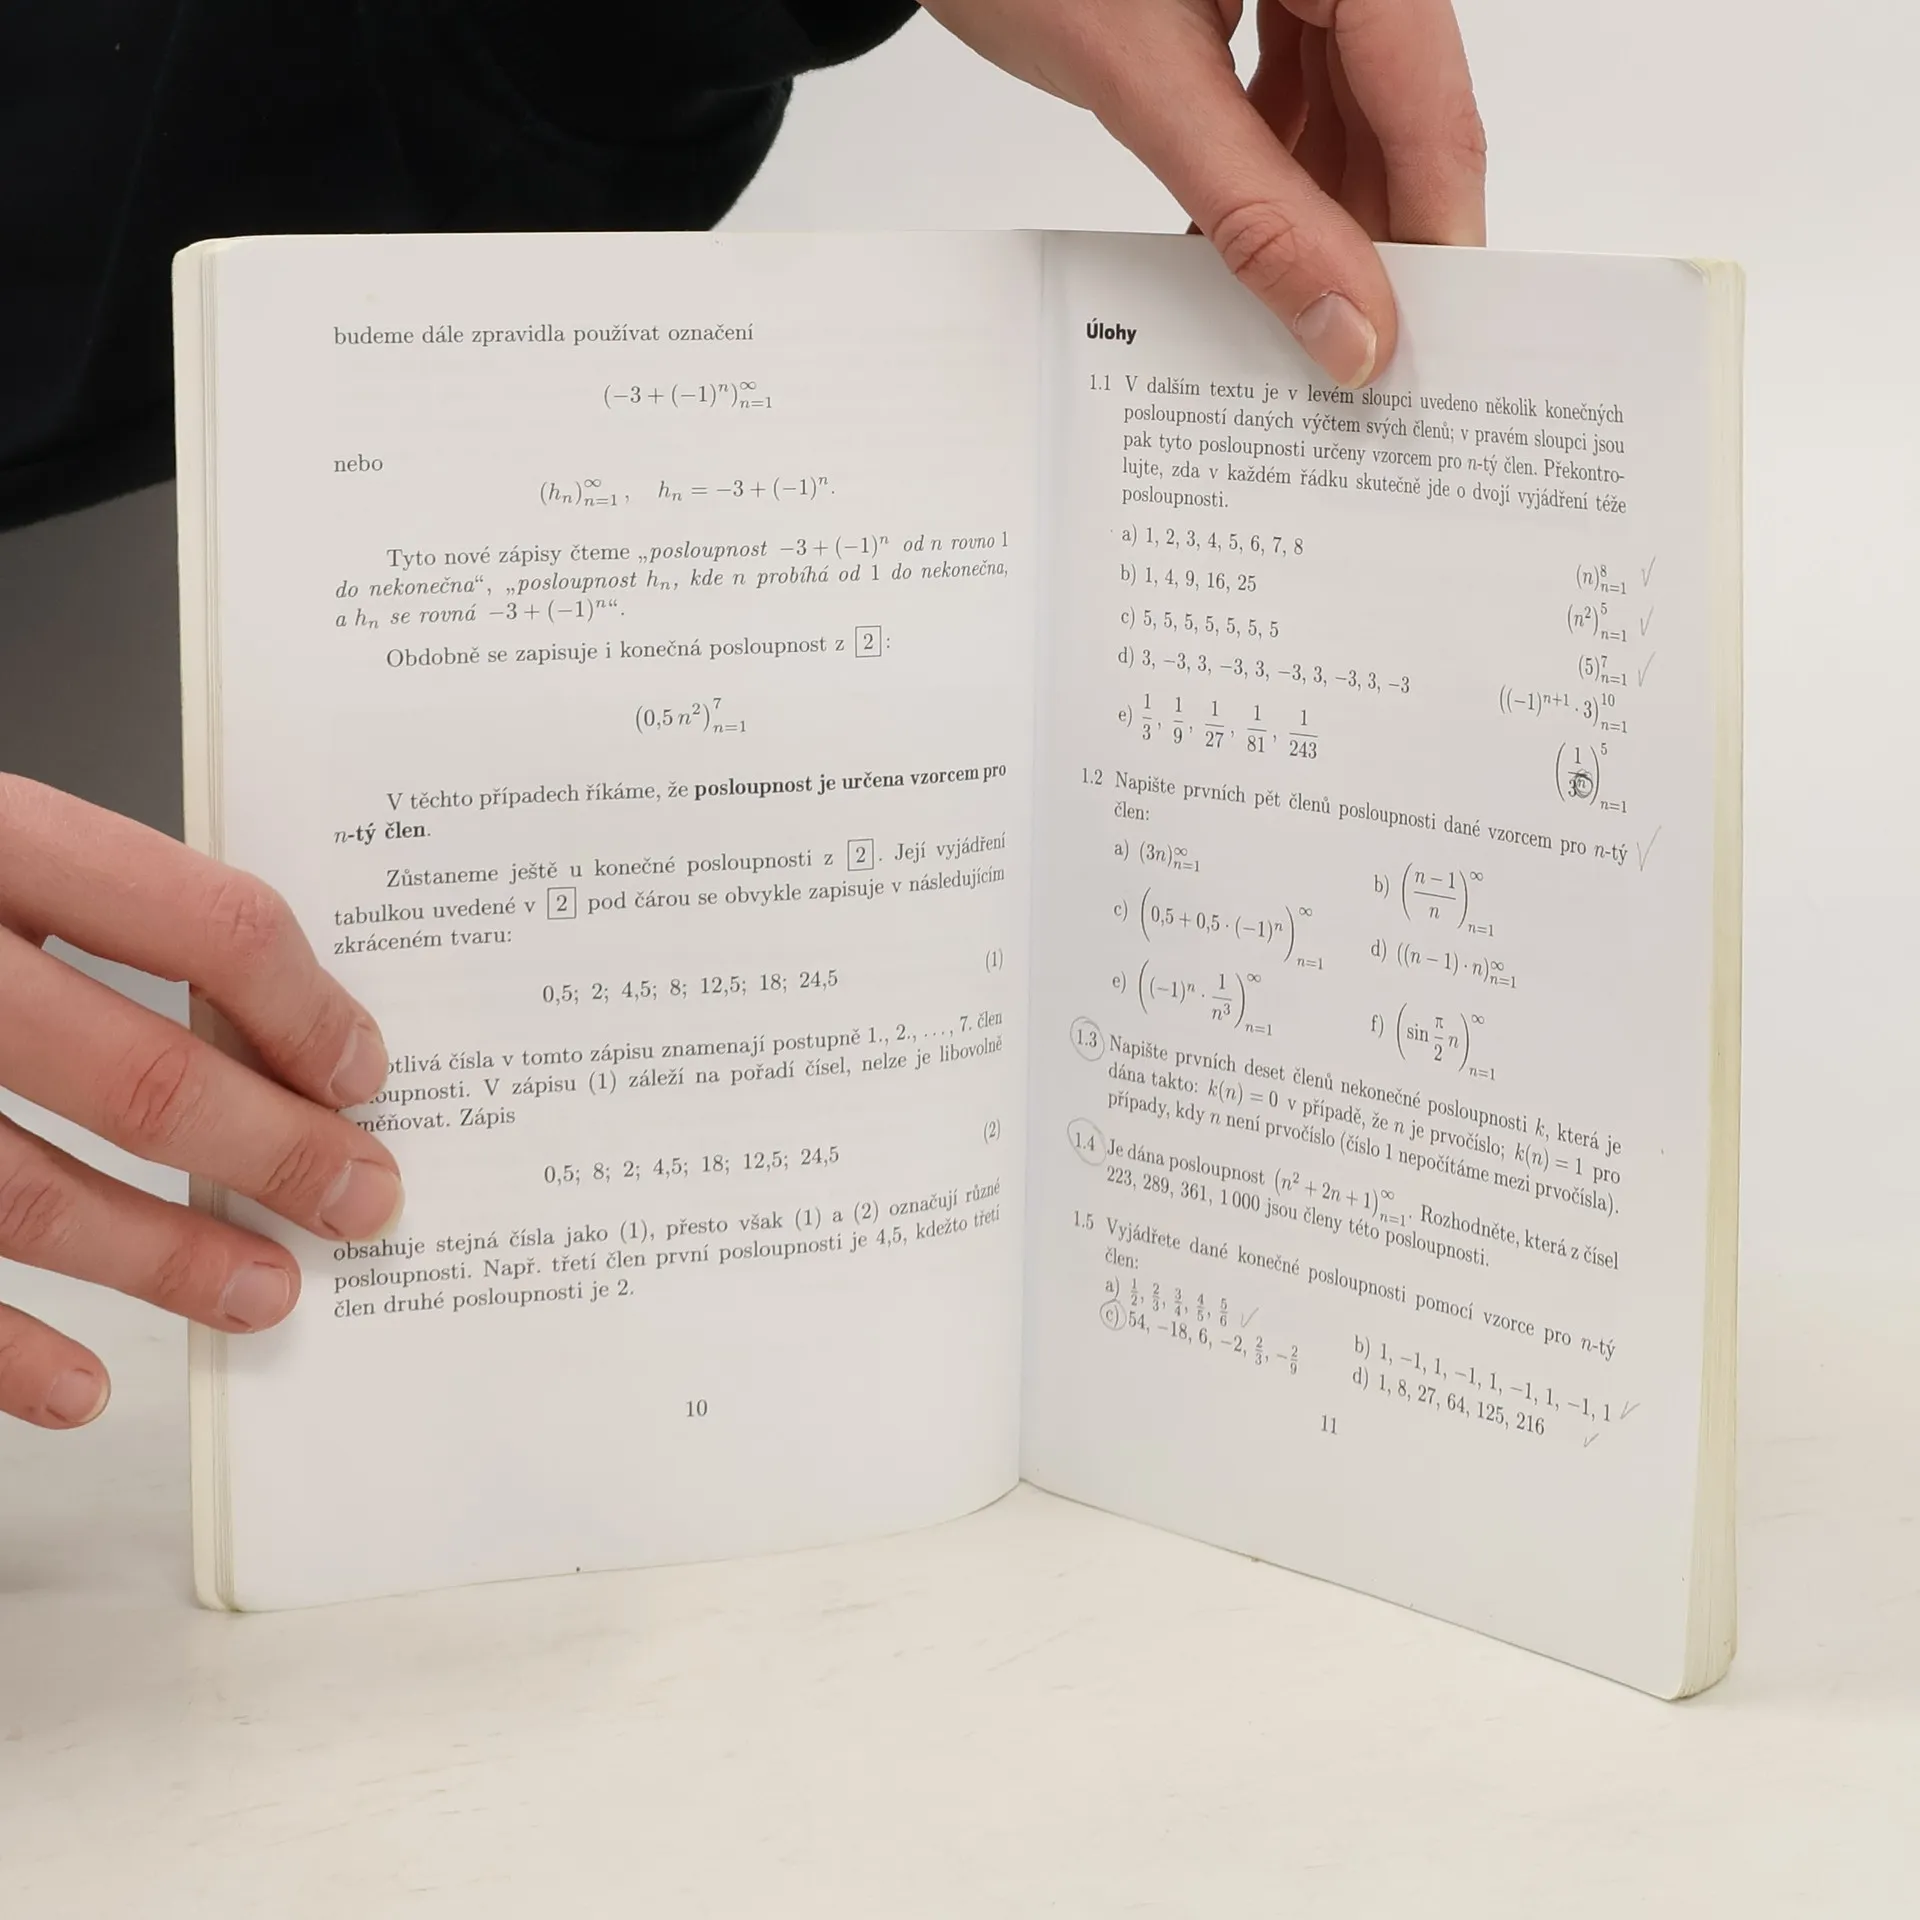 budeme dále zpravidla používat označení
(−3 + (−1)ⁿ)∞n=1
nebo
(hn)∞n=1 , hn = −3 + (−1)ⁿ.
Tyto nové zápisy čteme „posloupnost −3 + (−1)ⁿ od n rovno 1
do nekonečna“, „posloupnost hn, kde n probíhá od 1 do nekonečna,
a hn se rovná −3 + (−1)ⁿ“.
Obdobně se zapisuje i konečná posloupnost z 2:
(0,5 n²)7n=1
V těchto případech říkáme, že posloupnost je určena vzorcem pro
n-tý člen.
Zůstaneme ještě u konečné posloupnosti z 2. Její vyjádření
tabulkou uvedené v 2 pod čárou se obvykle zapisuje v následujícím
zkráceném tvaru:
0,5; 2; 4,5; 8; 12,5; 18; 24,5 (1)
otlivá čísla v tomto zápisu znamenají postupně 1., 2., …, 7. člen
oupnosti. V zápisu (1) záleží na pořadí čísel, nelze je libovolně
měňovat. Zápis
0,5; 8; 2; 4,5; 18; 12,5; 24,5 (2)
obsahuje stejná čísla jako (1), přesto však (1) a (2) označují různé
posloupnosti. Např. třetí člen první posloupnosti je 4,5, kdežto třetí
člen druhé posloupnosti je 2.
10
Úlohy
1.1 V dalším textu je v levém sloupci uvedeno několik konečných
posloupností daných výčtem svých členů; v pravém sloupci jsou
pak tyto posloupnosti určeny vzorcem pro n-tý člen. Překontro-
lujte, zda v každém řádku skutečně jde o dvojí vyjádření téže
posloupnosti.
a) 1, 2, 3, 4, 5, 6, 7, 8 (n)8n=1 ✓
b) 1, 4, 9, 16, 25 (n²)5n=1 ✓
c) 5, 5, 5, 5, 5, 5, 5 (5)7n=1 ✓
d) 3, −3, 3, −3, 3, −3, 3, −3, 3, −3 ((−1)ⁿ⁺¹ . 3)10n=1
e) 1/3, 1/9, 1/27, 1/81, 1/243 (1/3ⁿ)5n=1
1.2 Napište prvních pět členů posloupnosti dané vzorcem pro n-tý ✓
člen:
a) (3n)∞n=1 b) ((n − 1)/n)∞n=1
c) (0,5 + 0,5 · (−1)ⁿ)∞n=1 d) ((n − 1) · n)∞n=1
e) ((−1)ⁿ · 1/n³)∞n=1 f) (sin π/2 n)∞n=1
1.3 Napište prvních deset členů nekonečné posloupnosti k, která je
dána takto: k(n) = 0 v případě, že n je prvočíslo; k(n) = 1 pro
případy, kdy n není prvočíslo (číslo 1 nepočítáme mezi prvočísla).
1.4 Je dána posloupnost (n² + 2n + 1)∞n=1. Rozhodněte, která z čísel
223, 289, 361, 1 000 jsou členy této posloupnosti.
1.5 Vyjádřete dané konečné posloupnosti pomocí vzorce pro n-tý
člen:
a) 1/2, 2/3, 3/4, 4/5, 5/6 ✓ b) 1, −1, 1, −1, 1, −1, 1, −1, 1 ✓
c) 54, −18, 6, −2, 2/3, −2/9 d) 1, 8, 27, 64, 125, 216 ✓
11